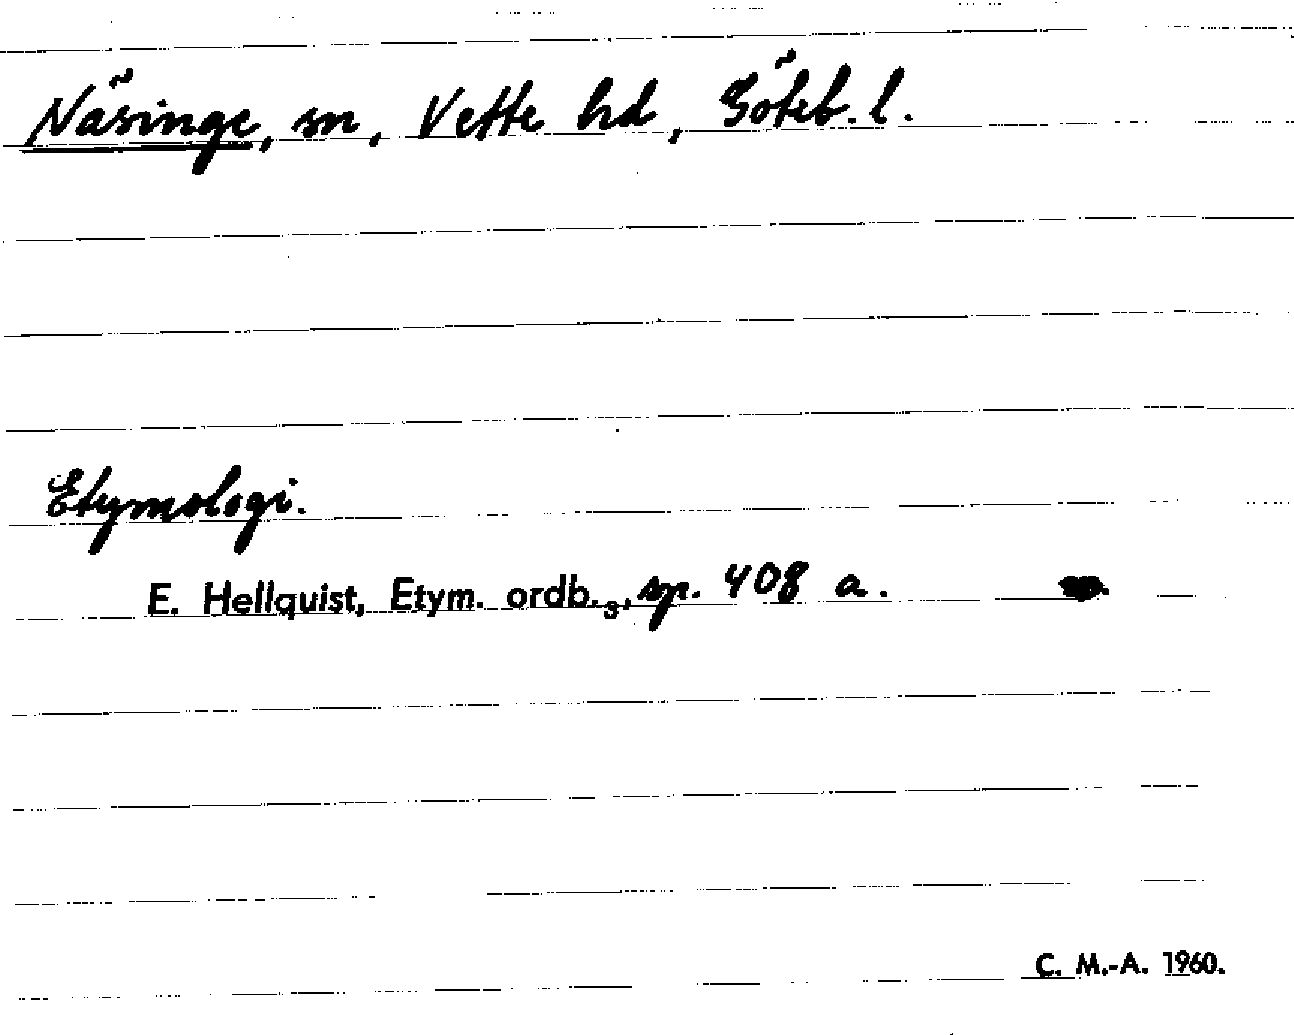 Näsinge, sn, Vette hd, Göteb. l.
Etymologi.
E. Hellquist, Etym. ordb.₃, sp. 408 a.
C. M.-A. 1960.